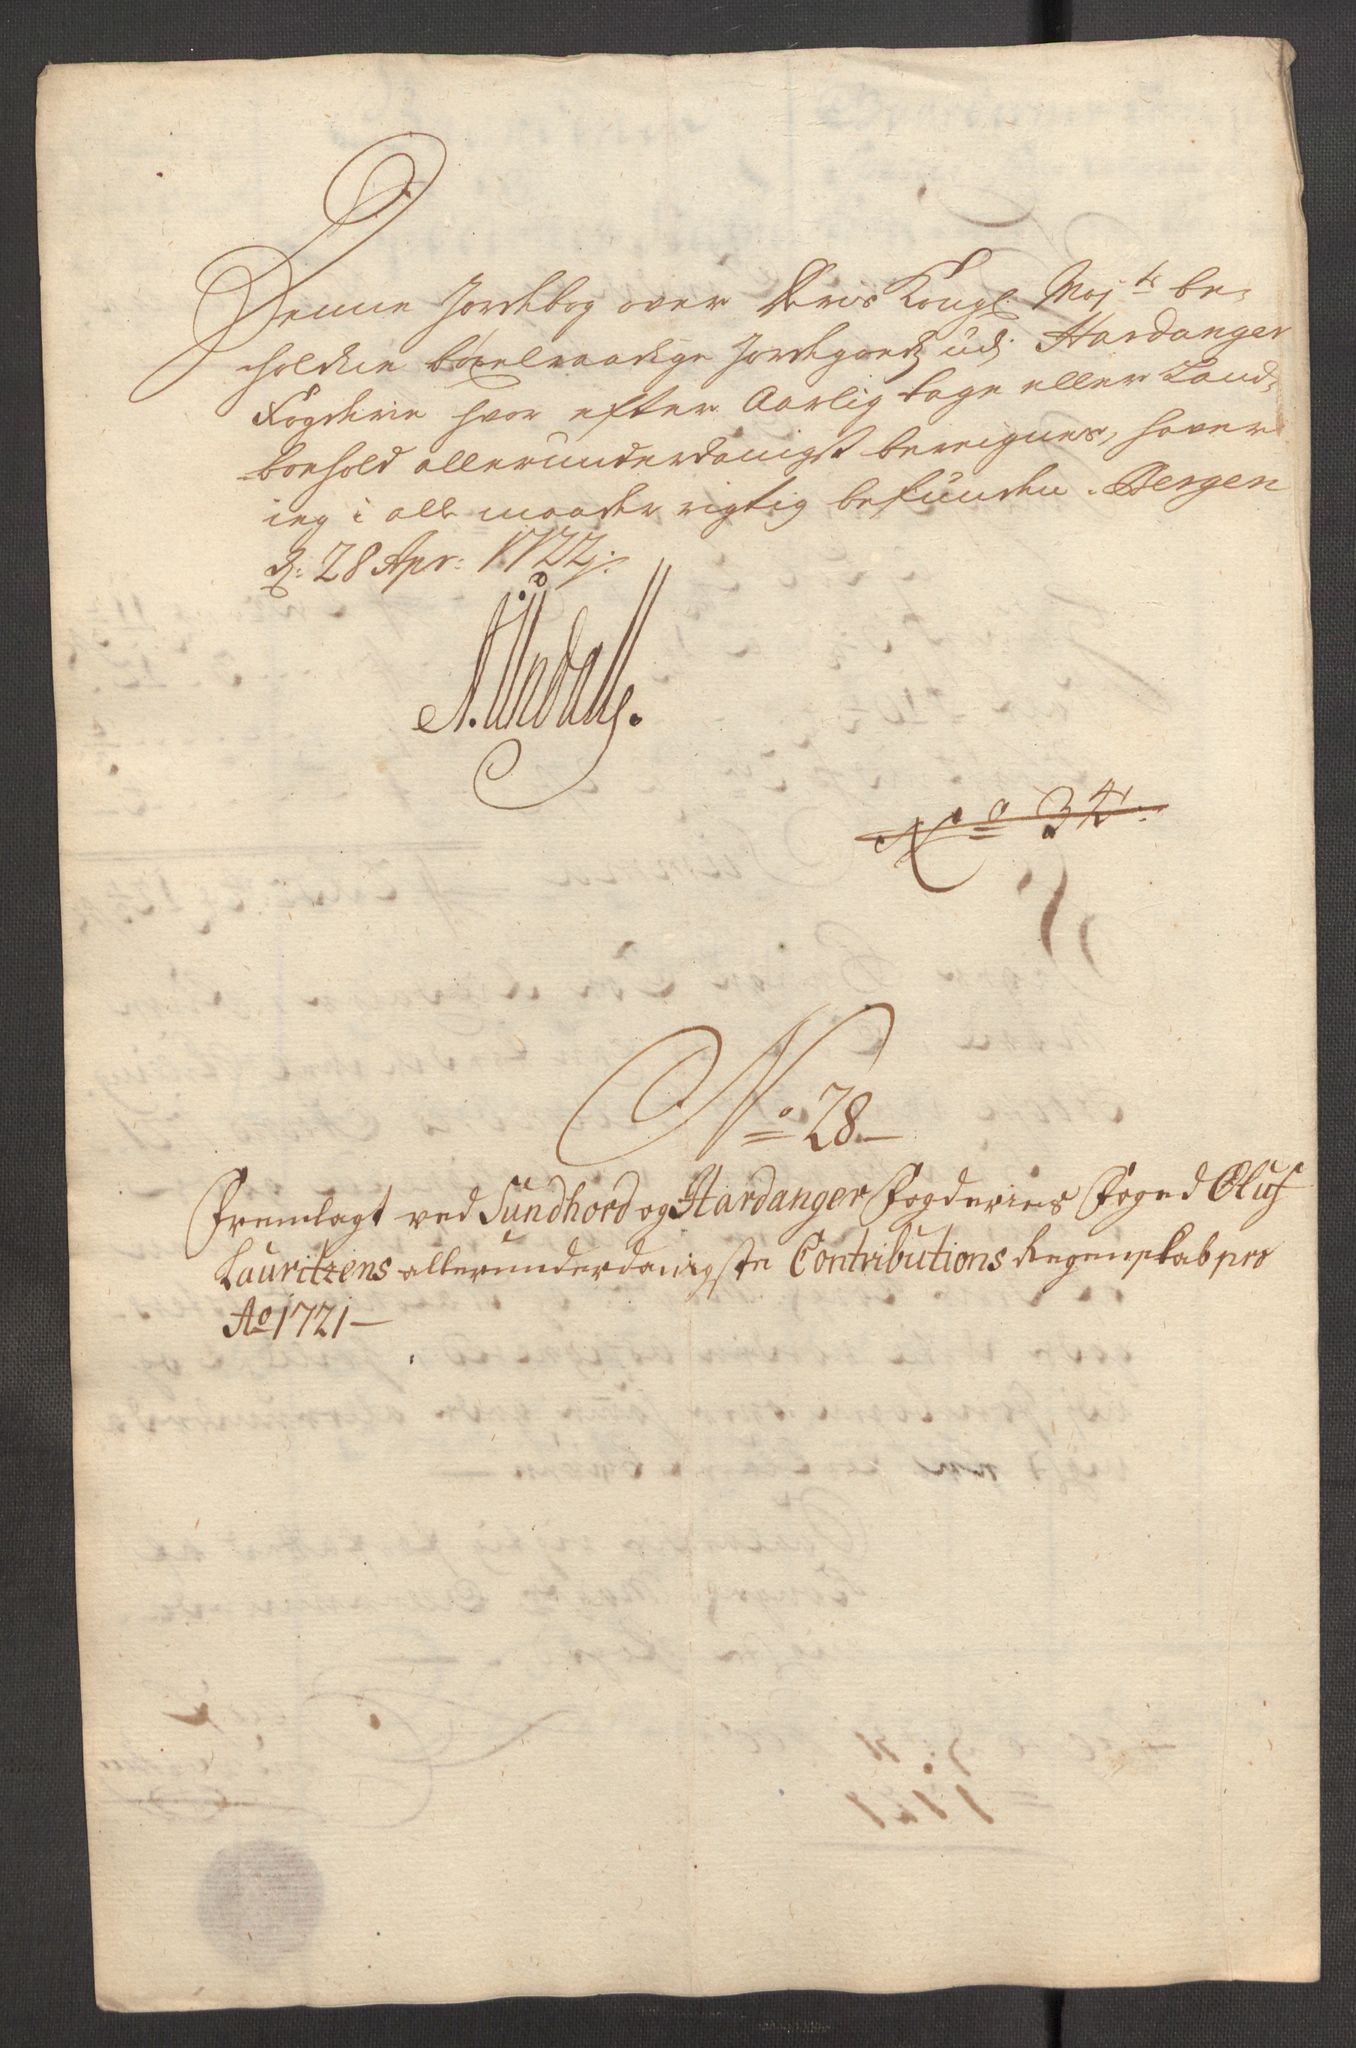 Denne Jordebog over Deris Kongl: Maj.ts be-
holdene böxelraadige Jordegoeds udj Hardanger
Fogderie hvor efter Aarlig tage eller Land-
boehold allerunderdanigst bereignes, haver
ieg i alle maader rigtig befunden. Bergen
d: 28 Apr: 1722.
No 34.
No 28
Fremlagt ved Sundhord og Hardanger Fogderies Foged Oluf
Lauritzens allerunderdanigste Contributions Regenskab pro
Ao 1721